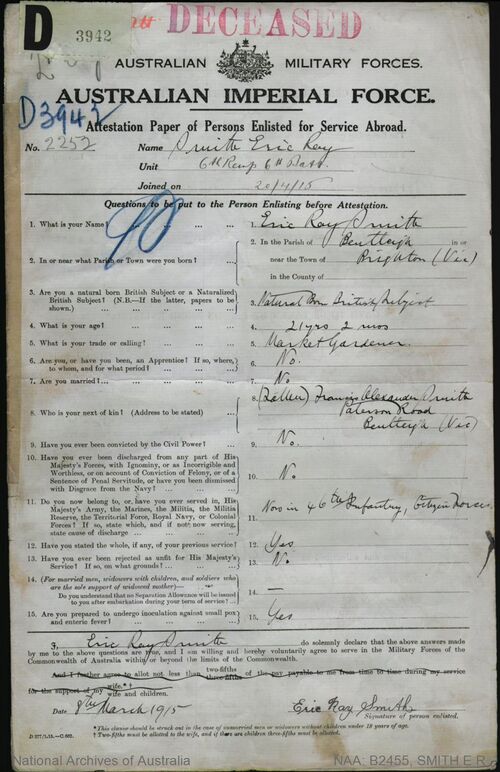 DECEASED
D 3942
AUSTRALIAN MILITARY FORCES.
AUSTRALIAN IMPERIAL FORCE.
D3942
Attestation Paper of Persons Enlisted for Service Abroad.
No. 2252 Name Smith Eric Ray
Unit 6th Reinf 6th Batt.
Joined on 20/4/15
Questions to be put to the Person Enlisting before Attestation.
1. What is your Name? ... ... ... 1. Eric Ray Smith
2. In or near what Parish or Town were you born? ... 2. In the Parish of Bentleigh in or
near the Town of Brighton (Vic)
in the County of
90
3. Are you a natural born British Subject or a Naturalized
British Subject? (N.B.—If the latter, papers to be
shown.) ... ... ... 3. Natural Born British Subject
4. What is your age? ... ... ... 4. 21 yrs 2 mos
5. What is your trade or calling? ... ... 5. Market Gardener
6. Are you, or have you been, an Apprentice? If so, where,
to whom, and for what period? ... ... 6. No.
7. Are you married? ... ... ... 7. No
8. Who is your next of kin? (Address to be stated) ... 8. (Father) Francis Alexander Smith
Paterson Road
Bentleigh (Vic)
9. Have you ever been convicted by the Civil Power? ... 9. No.
10. Have you ever been discharged from any part of His
Majesty's Forces, with Ignominy, or as Incorrigible and
Worthless, or on account of Conviction of Felony, or of a
Sentence of Penal Servitude, or have you been dismissed
with Disgrace from the Navy? ... ... 10. No.
11. Do you now belong to, or have you ever served in, His
Majesty's Army, the Marines, the Militia, the Militia
Reserve, the Territorial Force, Royal Navy, or Colonial
Forces? If so, state which, and if not now serving,
state cause of discharge ... ... 11. Now in 46th Infantry, Citizen Forces
12. Have you stated the whole, if any, of your previous service? 12. Yes
13. Have you ever been rejected as unfit for His Majesty's
Service? If so, on what grounds? ... ... 13. No.
14. (For married men, widowers with children, and soldiers who
are the sole support of widowed mother)—
Do you understand that no Separation Allowance will be issued
to you after embarkation during your term of service? ... 14. —
15. Are you prepared to undergo inoculation against small pox
and enteric fever? ... ... ... 15. Yes
I, Eric Ray Smith do solemnly declare that the above answers made
by me to the above questions are true, and I am willing and hereby voluntarily agree to serve in the Military Forces of the
Commonwealth of Australia within or beyond the limits of the Commonwealth.
And I further agree to allot not less than two-fifths three-fifths of the pay payable to me from time to time during my service
for the support of my wife.*†
wife and children.
Date 8th March 1915 Eric Ray Smith
Signature of person enlisted.
*This clause should be struck out in the case of unmarried men or widowers without children under 18 years of age.
† Two-fifths must be allotted to the wife, and if there are children three-fifths must be allotted.
National Archives of Australia NAA: B2455, SMITH E R